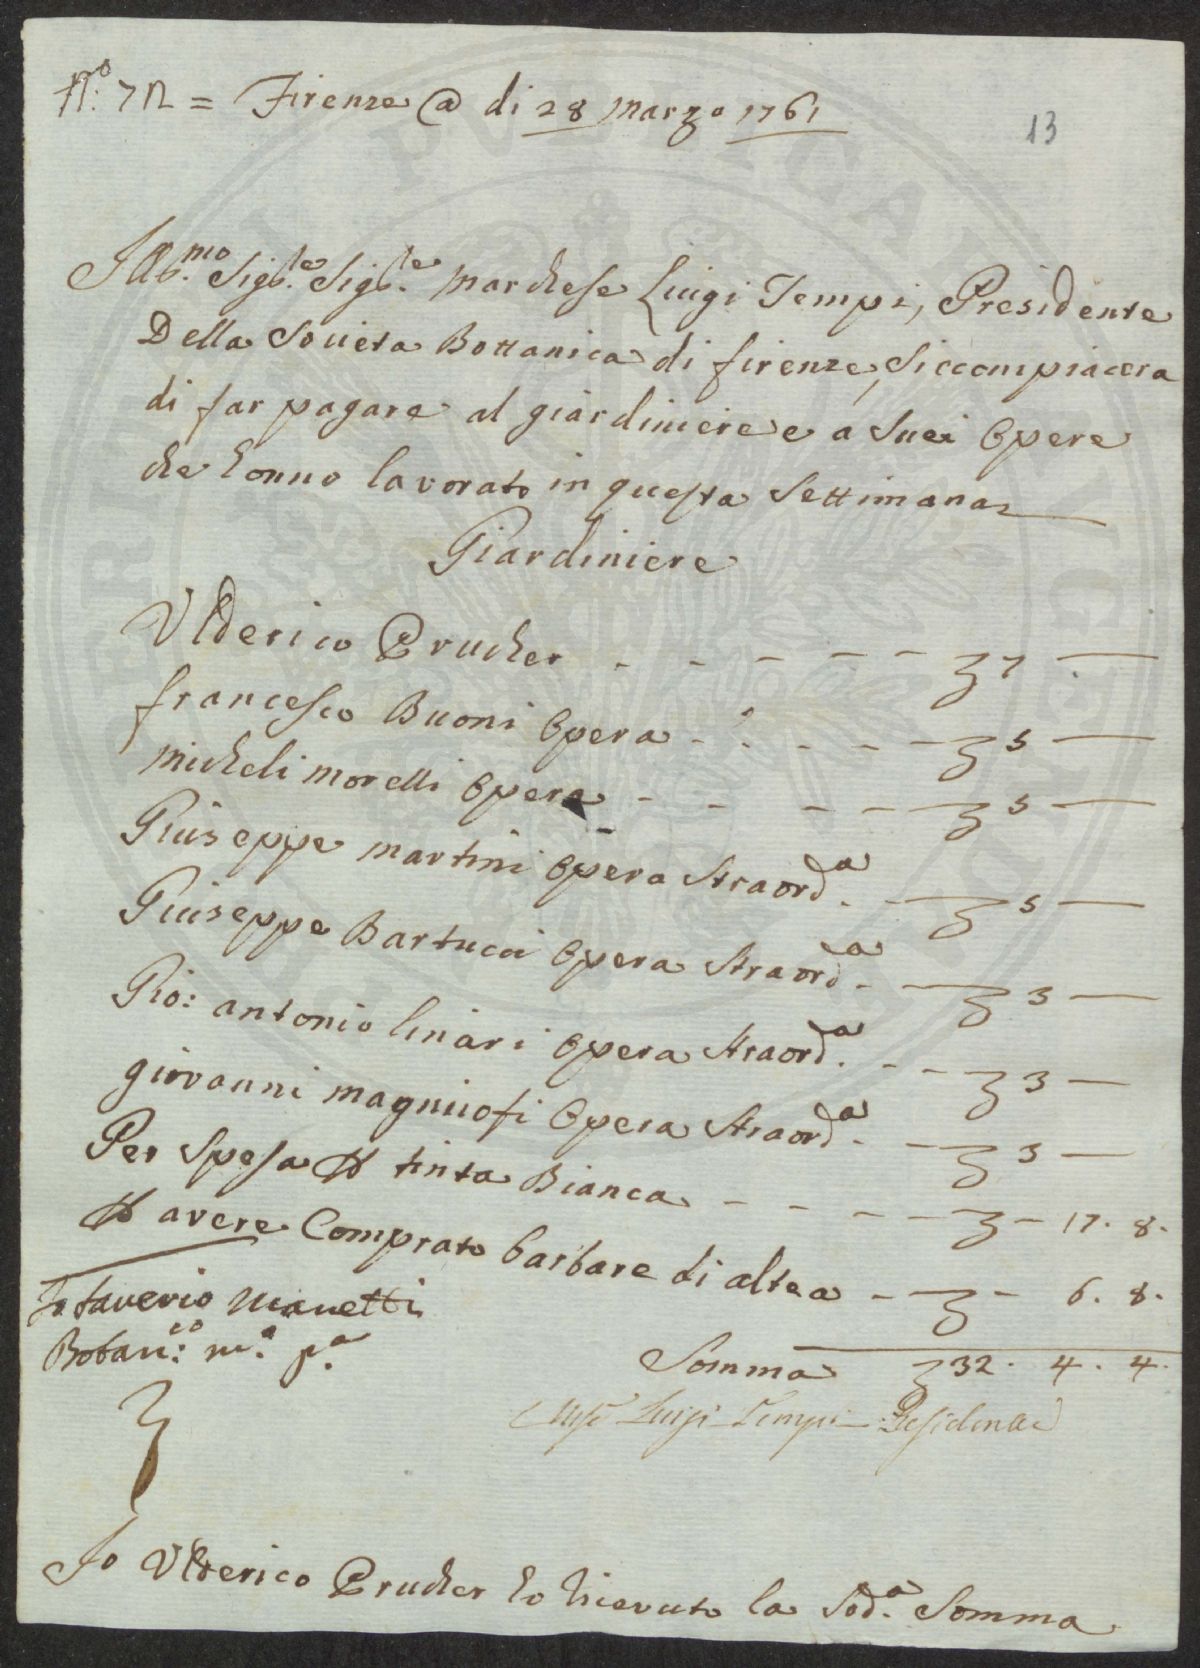 N.o 7 12 = Firenze @ di 28 Marzo 1761
13
Ill.mo Sig.re Sig.re Marchese Luigi Tempi, Presidente
Della Società Bottanica di firenze, Siccompiacera
di far pagare al giardiniere e a Suei Opere
che honno lavorato in questa Settimana
Giardiniere
Ulderico Prucher - - - - - - 7 —
francesco Buoni Opera - - - - - 5 —
micheli morelli Opera - - - - 5 —
Giuseppe martini Opera Straord.a - 5 —
Giuseppe Bartucci Opera Straord.a - 3 —
Gio: antonio linari Opera Straord.a - - 3 —
giovanni magniiofi Opera Straord.a - 3 —
Per Spesa tinta Bianca - - - - - 17. 8.
avere Comprato barbare di altea - - 6. 8.
Saverio Manetti
Botan.co m.a p.a
Somma 32. 4. 4.
Luigi Tempi Presidente
Io Ulderico Prucher ho Ricevuto la Sod.a Somma
PVBLICAE